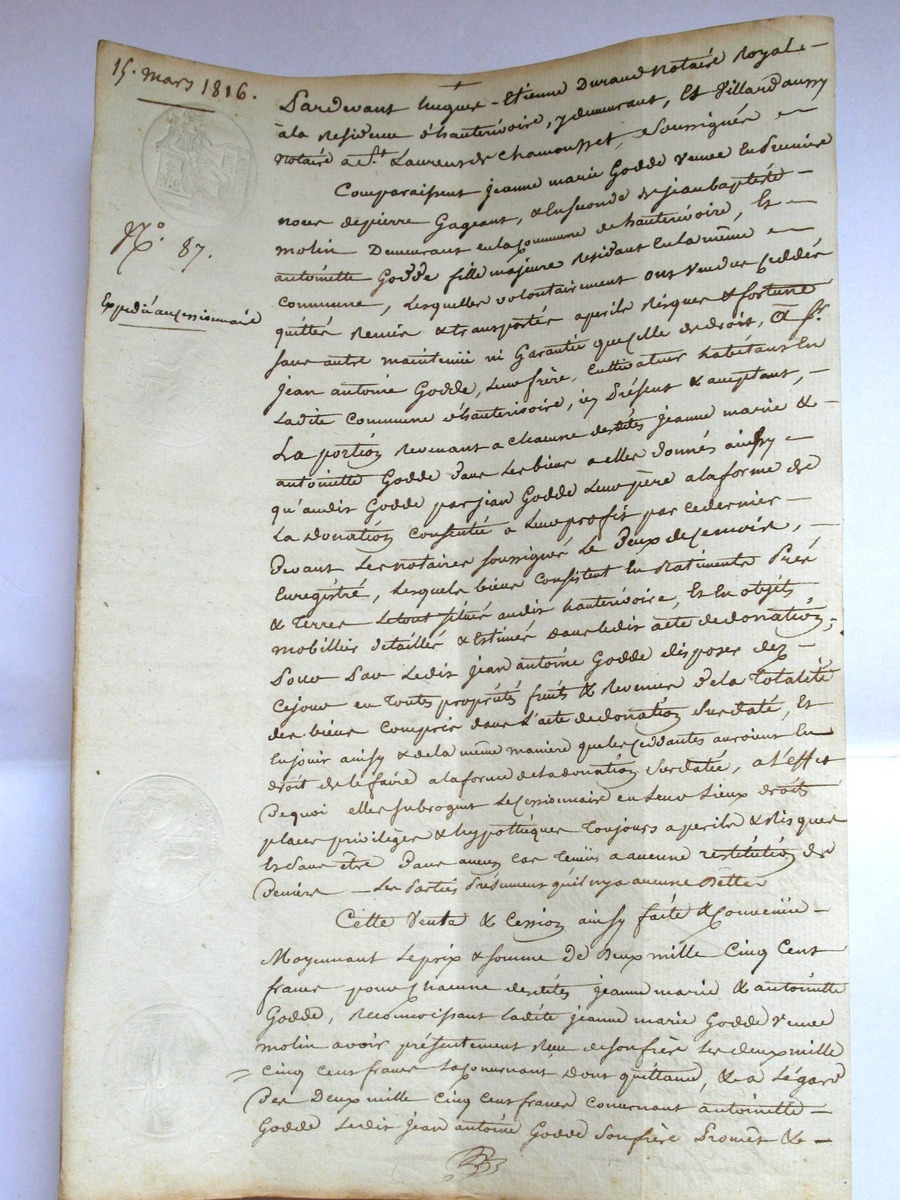 15. mars 1816.
N.° 87.
Expedié au Cessionnaire
Pardevant hugues-Etienne Durand Notaire Royal
à la Residence d'hauterivoire, y demeurant, Et Villard aussy
notaire a S.t Laurent de Chamousset, Soussignés
Comparaissent jeanne marie Godde Veuve En Premiere
noces de pierre Gageant, & En Seconde de jean baptiste
molin Demeurant en la Commune de hauterivoire, Et
antoinette Godde fille majeure residant En la même
Commune, Lesquelles volontairement ont vendu Ceddés
quittés Remis & transportés a perils Risques & fortune
sans autre maintenüe ni Garantie que Celle de droit, A S.r
jean antoine Godde, Leur frère, Cultivateur habitant En
Ladite Commune d'hauterivoire, icy Présent & acceptant,
La portion Revenant a chacune desdites jeanne marie &
antoinette Godde dans Les biens a elles donnés ainsy
qu'audit Godde par jean Godde Leur père a la forme de
La donation Consentie a Leur profit par ce dernier
Devant Les notaires soussignés Le Deux de Ce mois,
Enregistré, Lesquels biens Consistent En Batiments Prés
& Terres Le tout situé audit hauterivoire, Et En objets
mobilliers détaillés & Estimés dans ledit acte de donation,
Pour Par Ledit jean antoine Godde disposer dez
Cejour en Toutes propriétés fruits & Revenus De la Totalité
des biens Compris dans L'acte de donation Susdaté, Et
En jouir ainsy & de la même manière que les Ceddantes auroient Eu
droit de le faire a la forme de la donation Susdatée, a l'effet
De quoi elles subrogent Le Cessionnaire en Leur Lieux droits
places privilèges & hypothèques Toujours a perils & Risques
Et Sans être Dans aucun Cas Tenües a aucune restitution de
Deniers — Les Parties Présument qu'il n'y a aucune Dette
Cette Vente & Cession ainsy faite & Convenüe
Moyennant Le prix & somme de Deux mille Cinq Cent
francs pour Chacune desdites jeanne marie & antoinette
Godde, Reconnoissant Ladite jeanne marie Godde Veuve
molin avoir présentement Reçu de son frère Les deux mille
Cinq Cent francs La Concernant Dont quittance, & a L'égard
Des Deux mille Cinq Cent francs Concernant antoinette
Godde Ledit jean antoine Godde Son frère Promet &